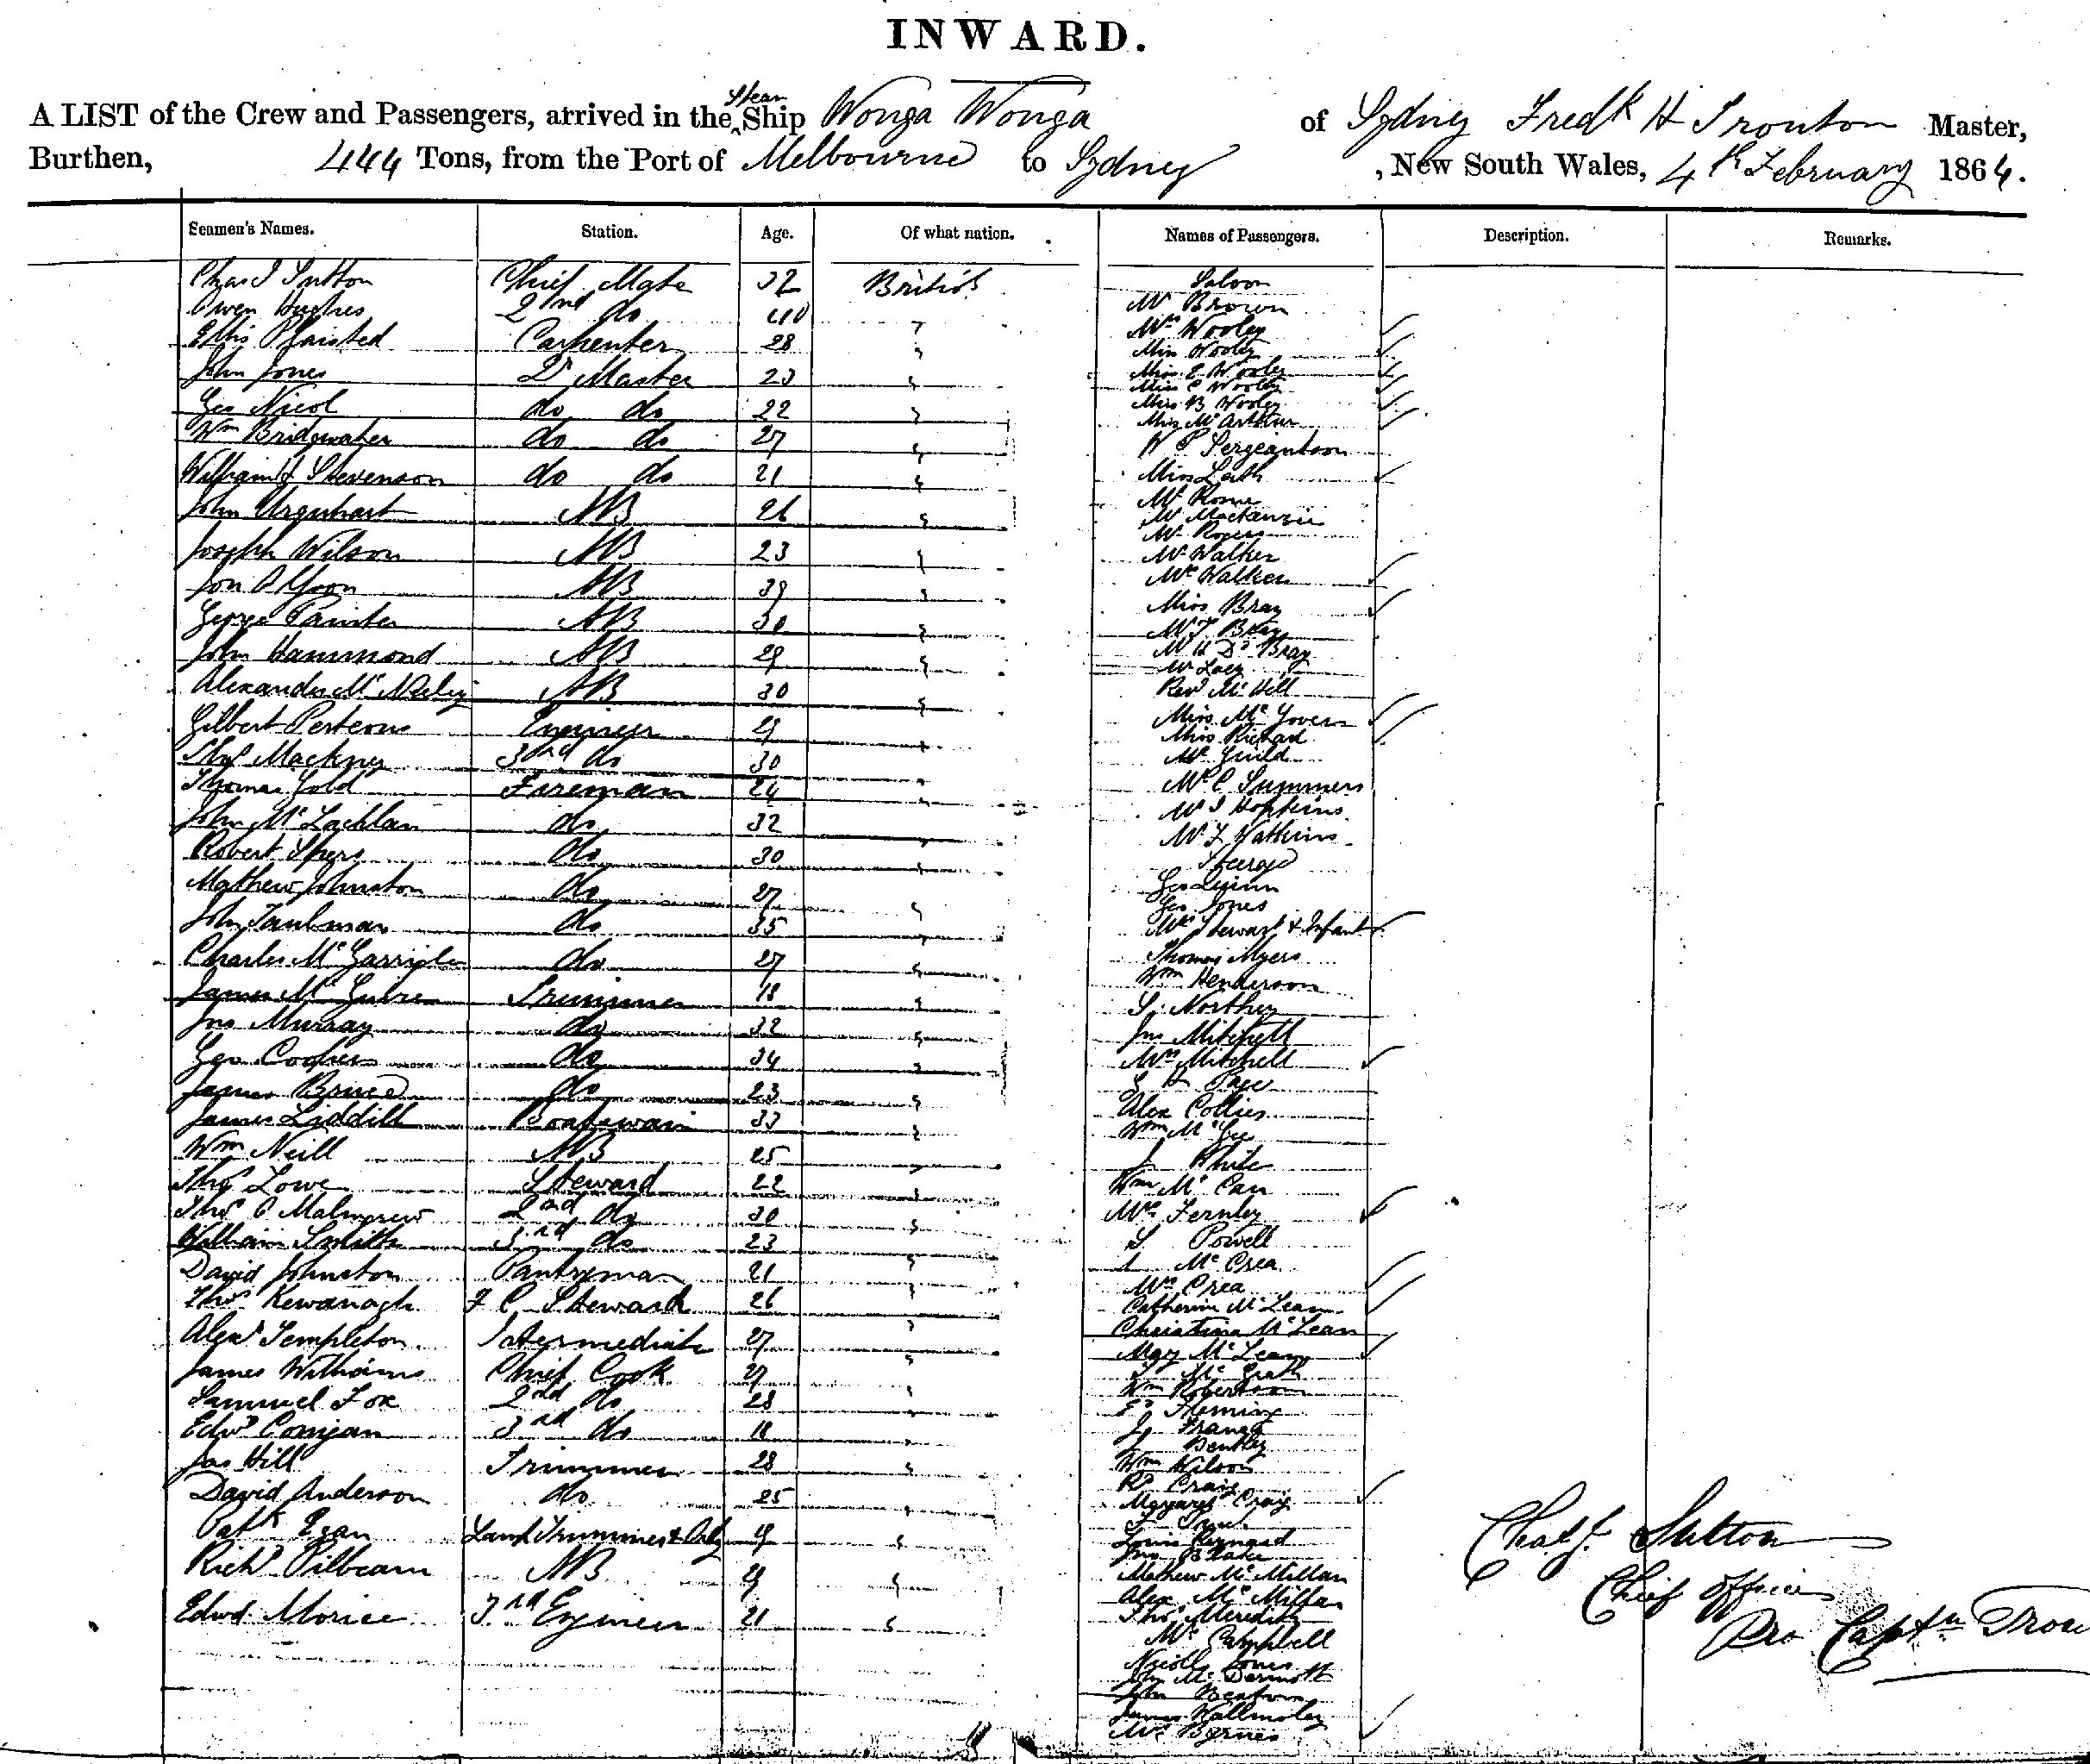 INWARD.
A LIST of the Crew and Passengers, arrived in the Steam Ship Wonga Wonga of Sydney Fredk H Trouton Master,
Burthen, 444 Tons, from the Port of Melbourne to Sydney, New South Wales, 4th February 1864.
Seamen's Names. Station. Age. Of what nation. Names of Passengers. Description. Remarks.
Chas J Sutton Chief Mate 32 British
Owen Hughes 2nd do 40 "
Ellis Plaisted Carpenter 28 "
John Jones Qr Master 23 "
Geo Nicol do do 22 "
Wm Bridgwater do do 27 "
William J Stevenson do do 21 "
John Urquhart AB 26 "
Joseph Wilson AB 23 "
Jon AB 39 "
George Painter AB 30 "
John Hammond AB 29 "
Alexander Mc AB 30 "
Gilbert Porteous Engineer 29 "
Thos Mackney 3rd do 30 "
Thomas Gold Fireman 24 "
John McLachlan do 32 "
Robert do 30 "
Mathew Johnston do 27 "
John Taubman do 35 "
Charles McGarrigle do 27 "
James Trimmer 18 "
Jno Murray do 32 "
Geo Cooper do 34 "
James Bruce do 23 "
James Liddill Boatswain 33 "
Wm Neill AB 25 "
Thos Lowe Steward 22 "
Thos 2nd do 30 "
William Smith 3rd do 23 "
David Johnston Pantryman 21 "
Thos Kewanagh F C Steward 26 "
Alexr Templeton Intermediate 27 "
James Williams Chief Cook 29 "
Samuel Fox 2nd do 28 "
Edwd Corrigan 3rd do 18 "
Jas Hill Trimmer 28 "
David Anderson do 25 "
Patk Egan Lamp Trimmer & 19 "
Richd Pilbeam AB 29 "
Edwd Morice 3rd Engineer 21 "
Saloon
Mr Brown
Mrs Wooley
Miss Wooley
Miss E Wooley
Miss C Wooley
Miss B Wooley
Miss McArthur
W P Sergeantson
Miss Leith
Mr Rome
Mr Mackenzie
Mr Rogers
Mr Walker
Mrs Walker
Miss Bray
Mr J Bray
Mr Bray
Mr Lacy
Revd Mr Hill
Miss McGovern
Miss Rickard
Mr Guild
Mr C Summers
Mr J Hopkins
Mr F Watkins
Steerage
Geo Quinn
Geo Jones
Mrs Stewart & Infant
Thomas Myers
Wm Henderson
S. Northey
Jno Mitchell
Mrs Mitchell
G H Page
Alex Collies
Wm McGee
J White
Wm McCan
Mrs Fernley
S Powell
McCrea
Mrs Crea
Catherine McLean
Christina McLean
Mary McLean
McGrath
Wm Robertson
Fleming
Bentley
Wm Wilson
R Craig
Margaret Craig
Louis
Jno Blake
Mathew McMillan
Alex McMillan
Thos Meredith
Mr Campbell
Nicoll Jones
John McDermott
John Beaton
James Wallmsley
Mrs Byrnes
Chas J. Sutton
Chief Officer
Pro Captn Trou